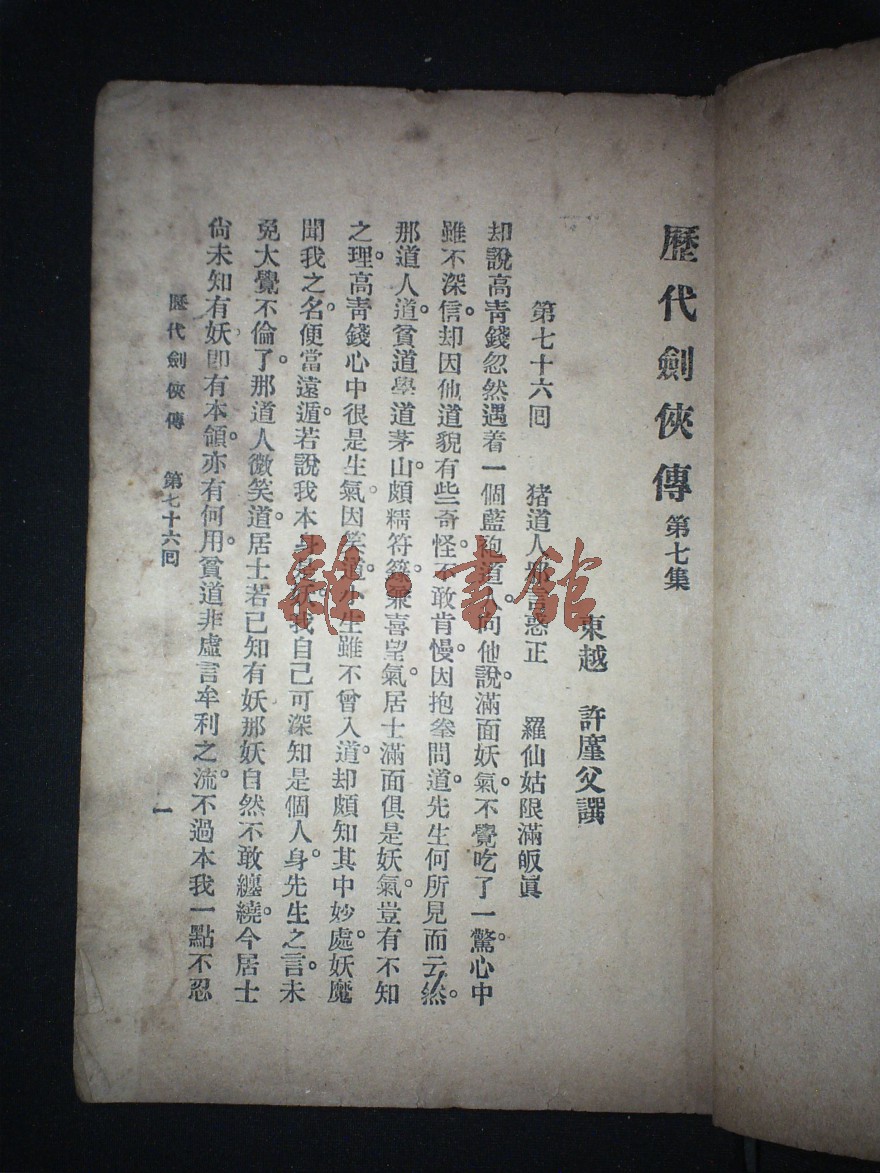 歷代劍俠傳 第七集
東越 許廑父譔
第七十六回 猪道人邪言惑正 羅仙姑限滿皈眞
却說高靑錢忽然遇着一個藍袍道人。向他說。滿面妖氣。不覺吃了一驚。心中
雖不深信。却因他道貌有些奇怪。不敢肯慢。因抱拳問道。先生何所見而云然。
那道人道。貧道學道茅山。頗精符籙。兼喜望氣。居士滿面俱是妖氣。豈有不知
之理。高靑錢心中很是生氣。因笑道。小生雖不曾入道。却頗知其中妙處。妖魔
聞我之名。便當遠遁。若說我本身是妖。我自己可深知是個人身。先生之言。未
免大覺不倫了。那道人微笑道。居士若已知有妖。那妖自然不敢纏繞。今居士
尙未知有妖。即有本領。亦有何用。貧道非虛言牟利之流。不過本我一點不忍
歷代劍俠傳 第七十六回
一
雜·書館